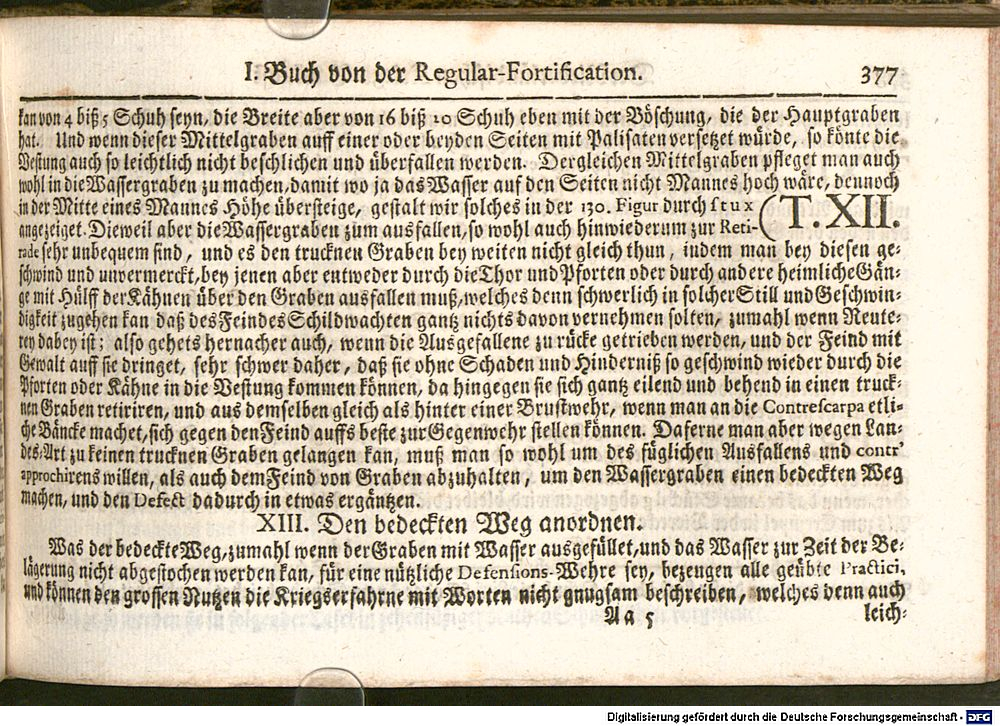 I. Buch von der Regular-Fortification. 377
kan von 4 biß 5 Schuh seyn, die Breite aber von 16 biß 20 Schuh eben mit der Böschung, die der Hauptgraben
hat. Und wenn dieser Mittelgraben auff einer oder beyden Seiten mit Palisaten versetzet würde, so könte die
Vestung auch so leichtlich nicht beschlichen und überfallen werden. Dergleichen Mittelgraben pfleget man auch
wohl in die Wassergraben zu machen, damit wo ja das Wasser auf den Seiten nicht Mannes hoch wäre, dennoch
in der Mitte eines Mannes Höhe übersteige, gestalt wir solches in der 130. Figur durch s t u x (T. XII.
angezeiget. Dieweil aber die Wassergraben zum ausfallen, so wohl auch hinwiederum zur Reti-
rade sehr unbequem sind, und es den trucknen Graben bey weiten nicht gleich thun, indem man bey diesen ge-
schwind und unvermerckt, bey jenen aber entweder durch die Thor und Pforten oder durch andere heimliche Gän-
ge mit Hülff der Kähnen über den Graben ausfallen muß, welches denn schwerlich in solcher Still und Geschwin-
digkeit zugehen kan daß des Feindes Schildwachten gantz nichts davon vernehmen solten, zumahl wenn Reute-
rey dabey ist; also gehets hernacher auch, wenn die Ausgefallene zu rücke getrieben werden, und der Feind mit
Gewalt auff sie dringet, sehr schwer daher, daß sie ohne Schaden und Hinderniß so geschwind wieder durch die
Pforten oder Kähne in die Vestung kommen können, da hingegen sie sich gantz eilend und behend in einen truck-
nen Graben retiriren, und aus demselben gleich als hinter einer Brustwehr, wenn man an die Contrescarpa etli-
che Bäncke machet, sich gegen den Feind auffs beste zur Gegenwehr stellen können. Daferne man aber wegen Lan-
des-Art zu keinen trucknen Graben gelangen kan, muß man so wohl um des füglichen Ausfallens und contr'
approchirens willen, als auch dem Feind von Graben abzuhalten, um den Wassergraben einen bedeckten Weg
machen, und den Defect dadurch in etwas ergäntzen.
XIII. Den bedeckten Weg anordnen.
Was der bedeckte Weg, zumahl wenn der Graben mit Wasser ausgefüllet, und das Wasser zur Zeit der Be-
lägerung nicht abgestochen werden kan, für eine nützliche Defensions-Wehre sey, bezeugen alle geübte Practici,
und können den grossen Nutzen die Kriegserfahrne mit Worten nicht gnugsam beschreiben, welches denn auch
Aa 5 leich-
Digitalisierung gefördert durch die Deutsche Forschungsgemeinschaft - DFG